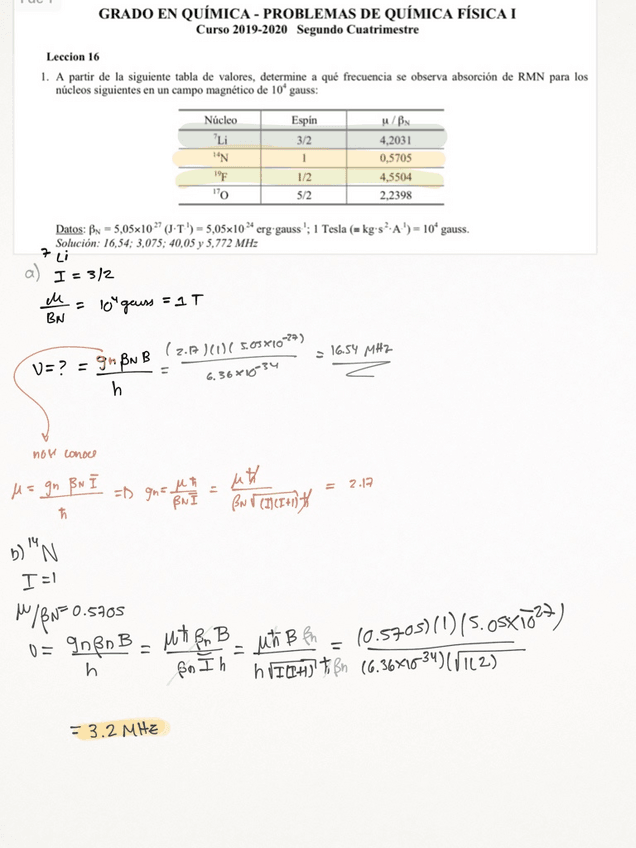 GRADO EN QUÍMICA - PROBLEMAS DE QUÍMICA FÍSICA I
Curso 2019-2020 Segundo Cuatrimestre
Leccion 16
1. A partir de la siguiente tabla de valores, determine a qué frecuencia se observa absorción de RMN para los
núcleos siguientes en un campo magnético de 10⁴ gauss:
Núcleo Espín μ / βN
⁷Li 3/2 4,2031
¹⁴N 1 0,5705
¹⁹F 1/2 4,5504
¹⁷O 5/2 2,2398
Datos: βN = 5,05×10⁻²⁷ (J·T⁻¹) = 5,05×10⁻²⁴ erg·gauss⁻¹; 1 Tesla (≡ kg·s⁻²·A⁻¹) = 10⁴ gauss.
Solución: 16,54; 3,075; 40,05 y 5,772 MHz
⁷Li
a) I = 3/2
μ/βN = 10⁴ gauss = 1 T
ν = ? = gn βN B / h = (2.17)(1)(5.05×10⁻²⁷) / 6.36×10⁻³⁴ = 16.54 MHz
conoce
μ = gn βN I / ħ => gn = μħ / βN I = μħ / βN √(I)(I+1) ħ = 2.17
b) ¹⁴N
I = 1
μ/βN = 0.5705
υ = gnβnB / h = μħ βn B / βn I h = μħ B βn / h√I(I+1) ħ βn = (0.5705)(1)(5.05×10⁻²⁷) / (6.36×10⁻³⁴)(√1(2)
= 3.2 MHz